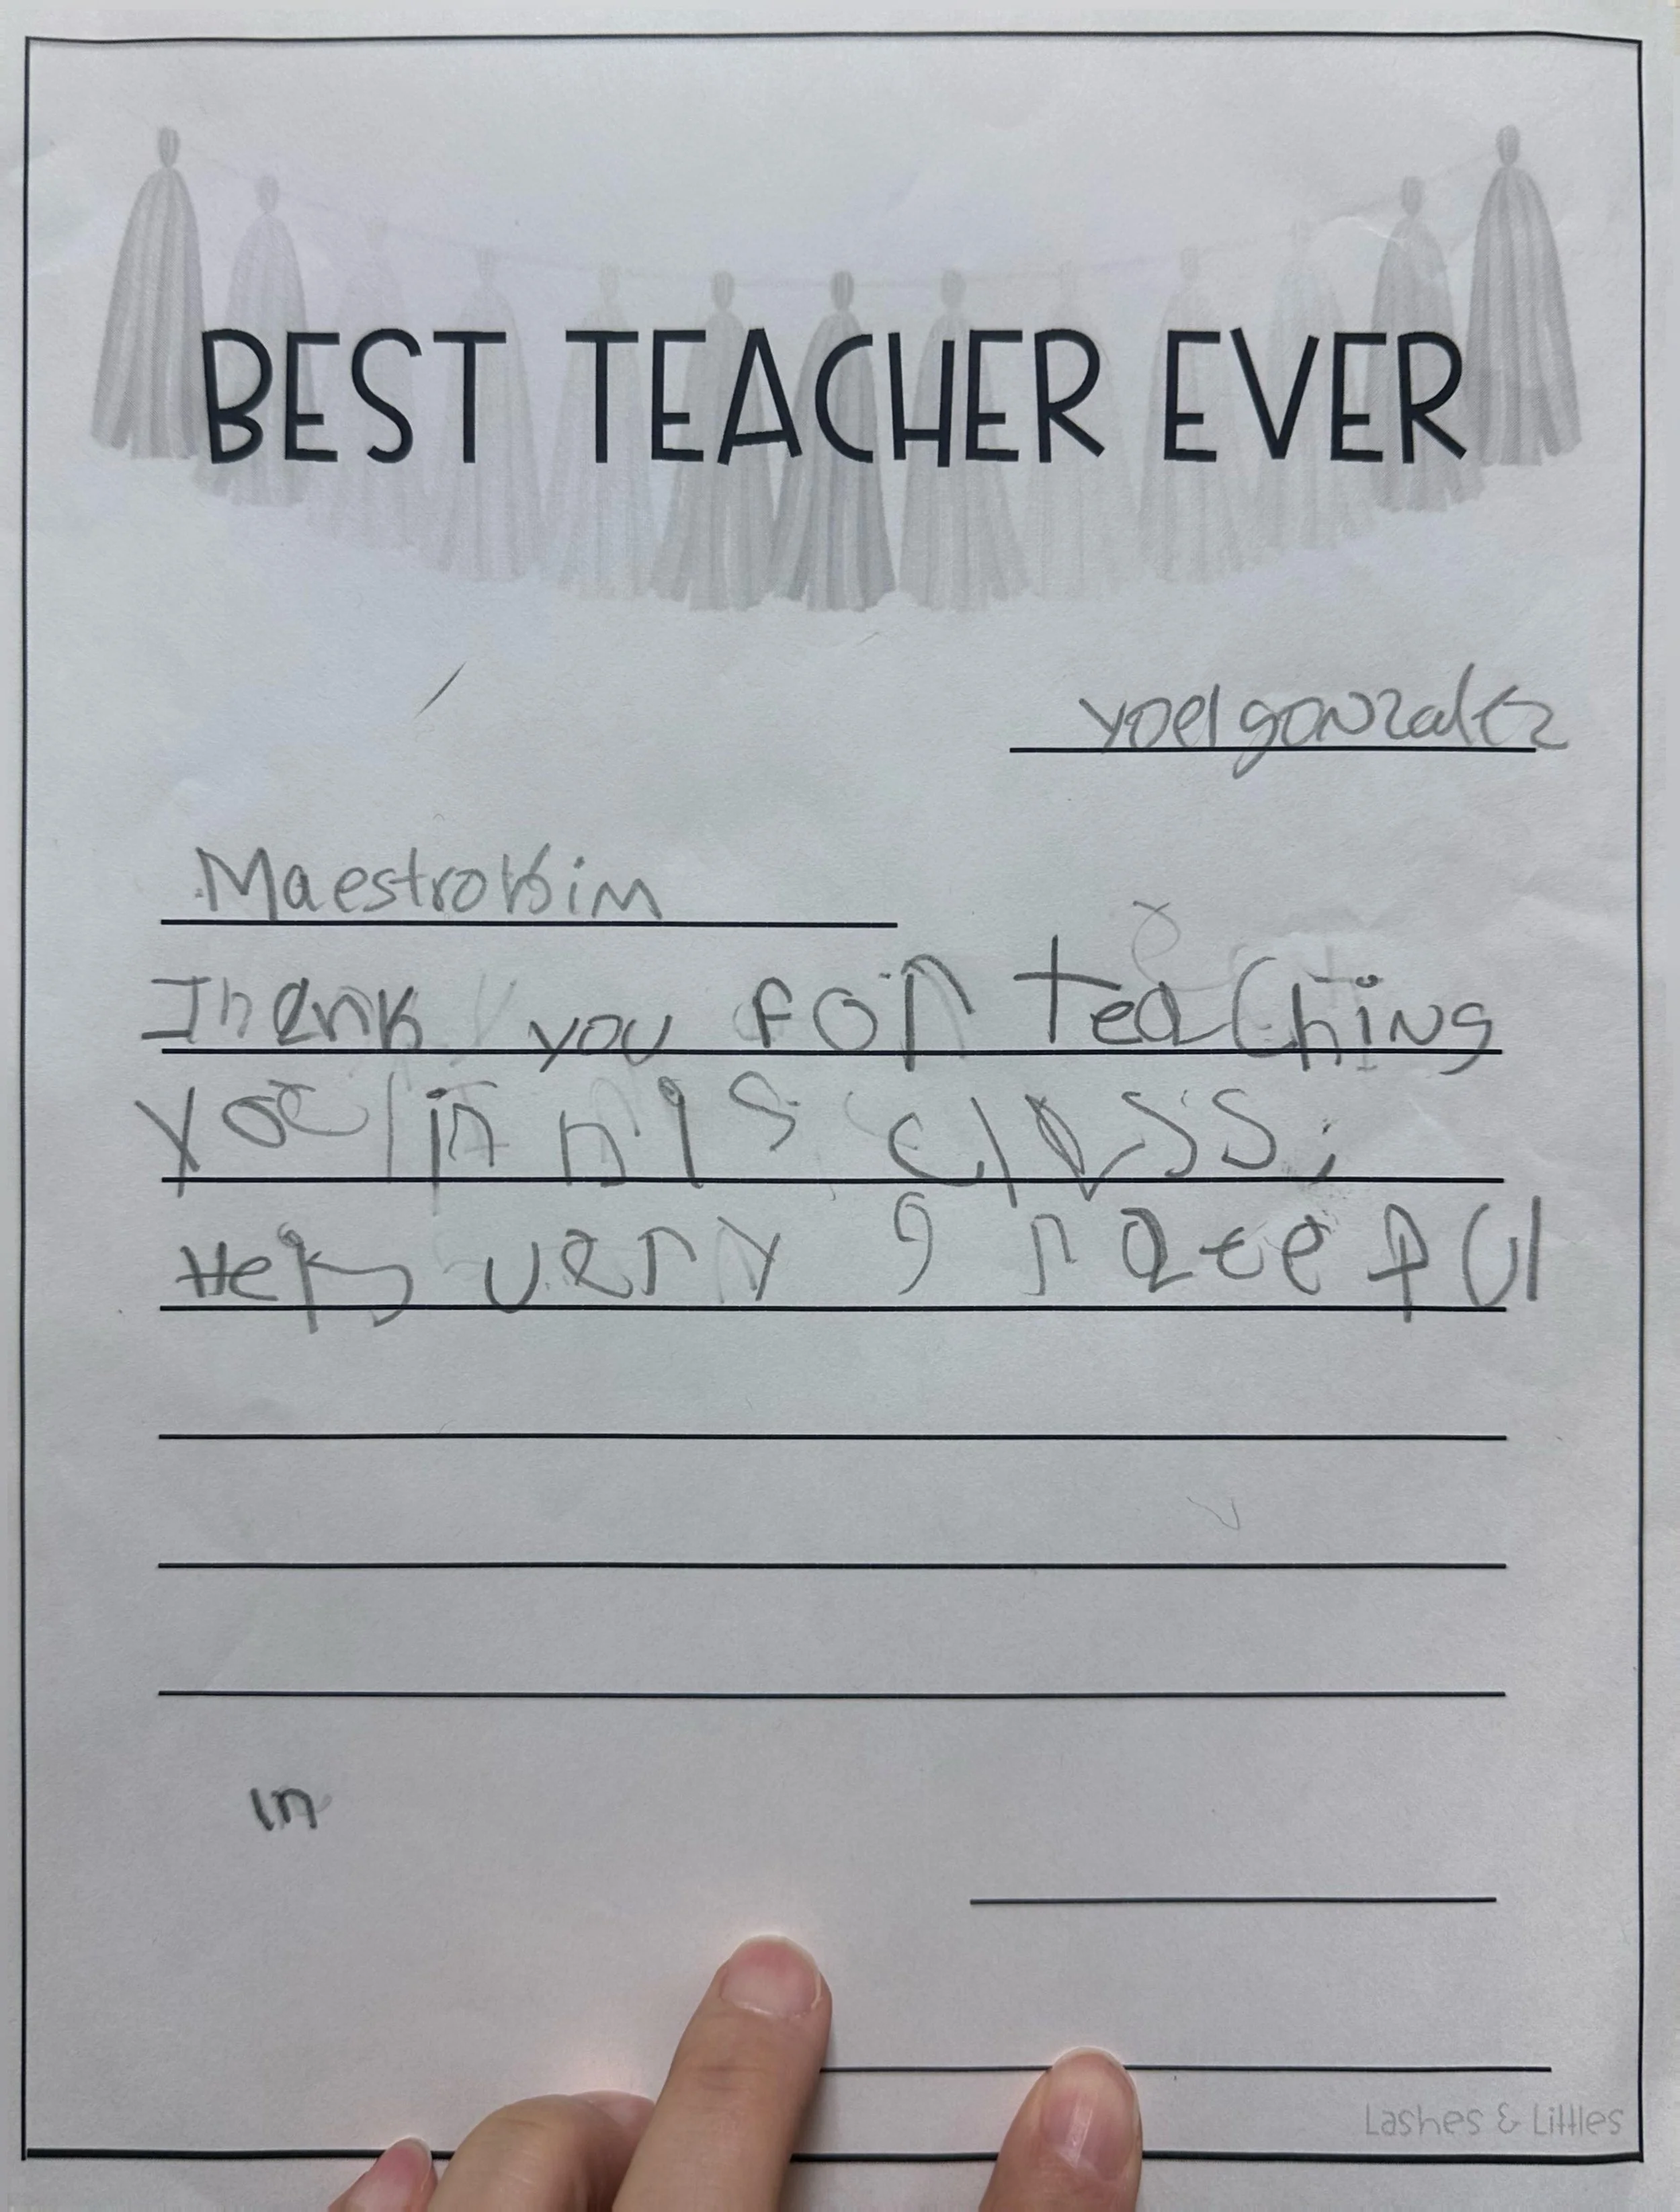 BEST TEACHER EVER
yoel gonzalez
Maestro Kim
Thank you for teaching
yoel in his class.
very grateful
in
Lashes & Littles